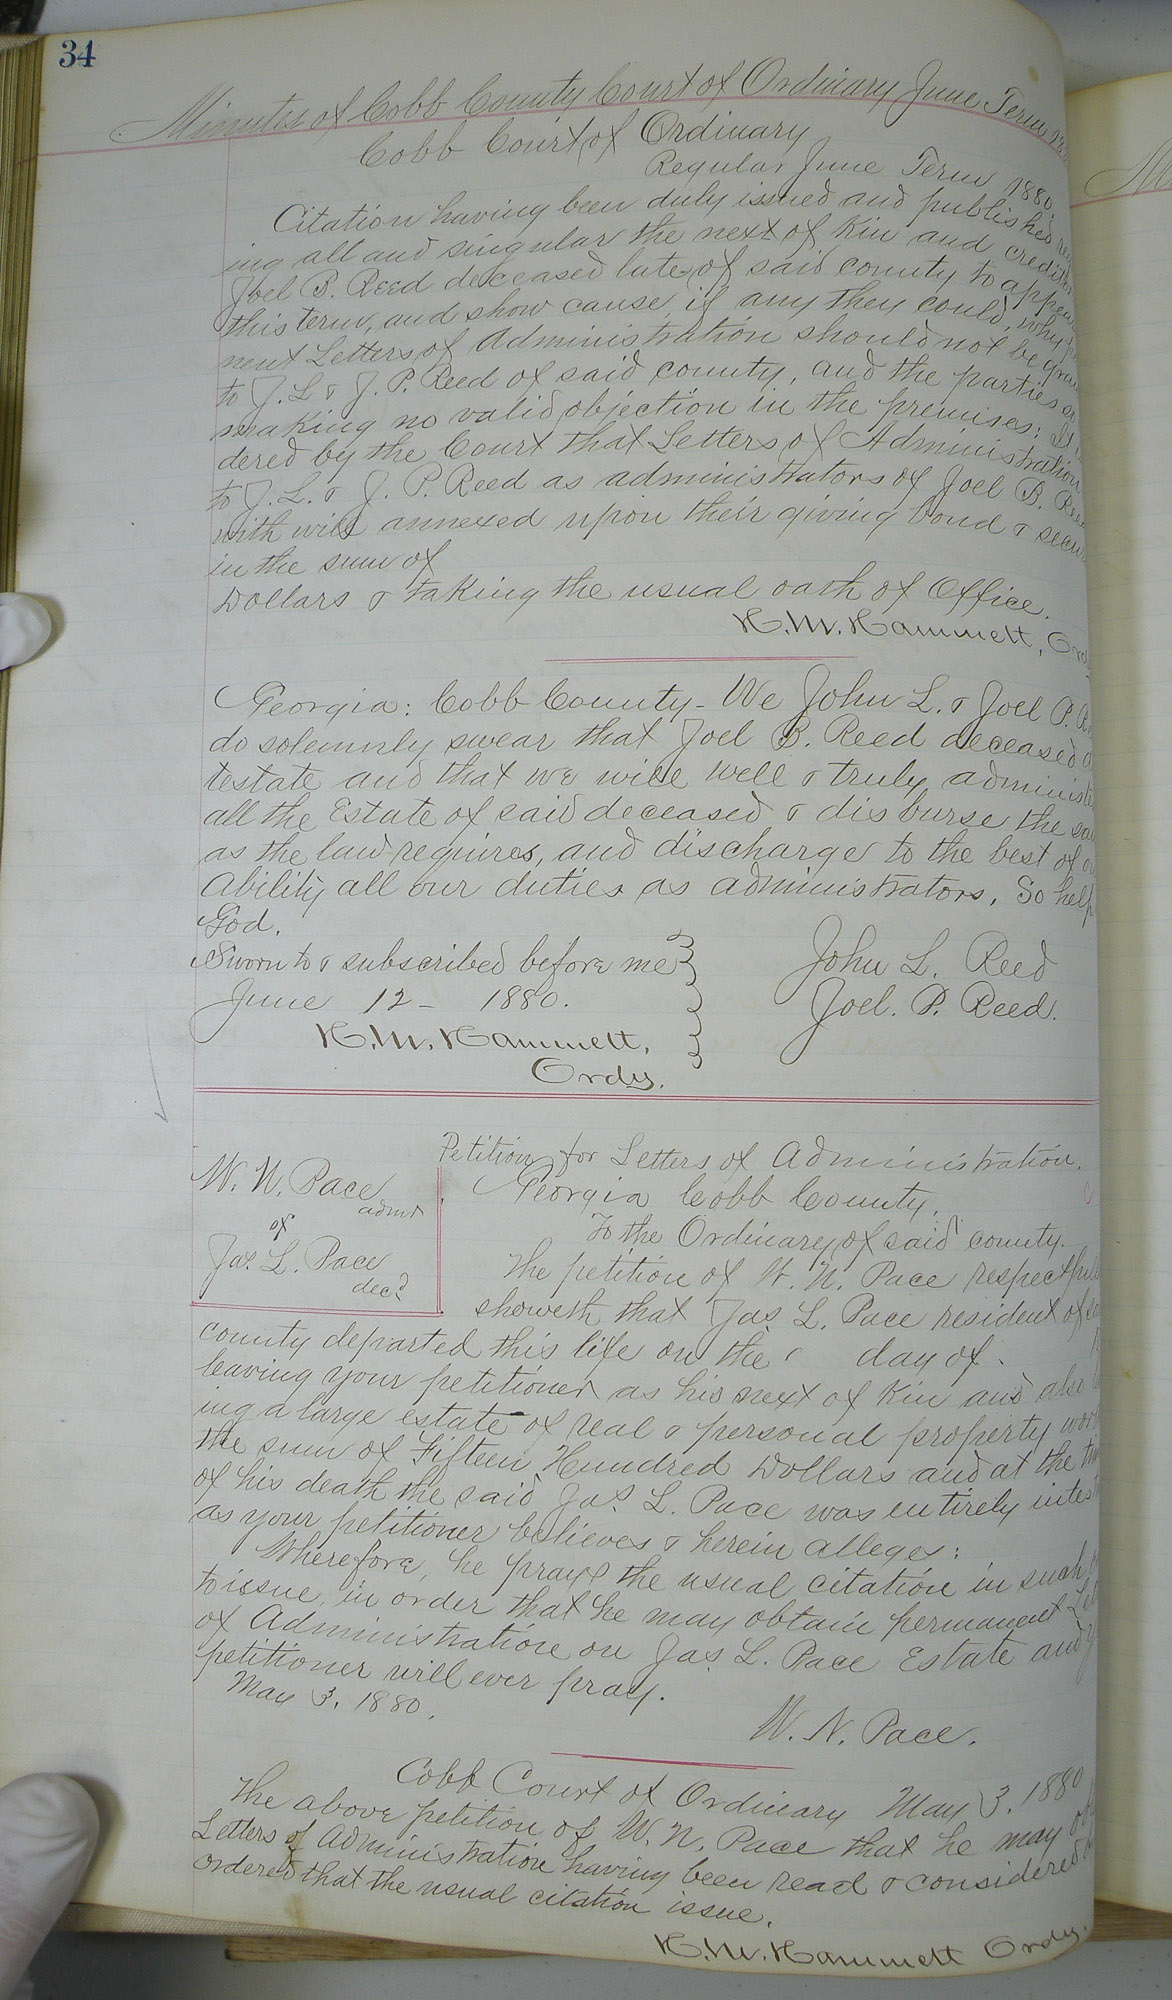 34
Minutes of Cobb County Court of Ordinary June Term
Cobb Court of Ordinary
Regular June Term 1880
Citation having been duly issued and published
ing all and singular the next of kin and creditors
Joel B. Reed deceased late of said county to appear
this term, and show cause, if any they could, why
nent Letters of Administration should not be
to J. L. & J. P. Reed of said county, and the parties
making no valid objection in the premises: It
dered by the Court that Letters of Administration
to J. L. & J. P. Reed as administrators of Joel B. Reed
with will annexed upon their giving bond &
in the sum of
Dollars & taking the usual oath of Office.
H. M. Hammett, Ordy
Georgia: Cobb County - We John L. & Joel P.
do solemnly swear that Joel B. Reed deceased
testate and that we will well & truly administer
all the Estate of said deceased & disburse the
as the law requires, and discharge to the best of
Ability all our duties as administrators. So help
God.
Sworn to & subscribed before me
June 12 - 1880.
H. M. Hammett,
Ordy.
John L. Reed
Joel. P. Reed.
W. N. Pace
admr
of
Jas. L. Pace
decd
Petition for Letters of Administration.
Georgia Cobb County.
To the Ordinary of said county.
The petition of W. N. Pace
showeth that Jas. L. Pace resident of
county departed this life on the day of
leaving your petitioner as his next of kin and also
ing a large estate of real & personal property
the sum of Fifteen Hundred Dollars and at the
of his death the said Jas. L. Pace was entirely
as your petitioner believes & herein alleges:
Wherefore, he prays the usual citation in such
to issue, in order that he may obtain permanent
of Administration on Jas. L. Pace Estate and
petitioner will ever pray.
May 3. 1880.
W. N. Pace.
Cobb Court of Ordinary May 3. 1880
The above petition of W. N. Pace that he may
Letters of Administration having been read & considered
ordered that the usual citation issue.
H. M. Hammett Ordy.